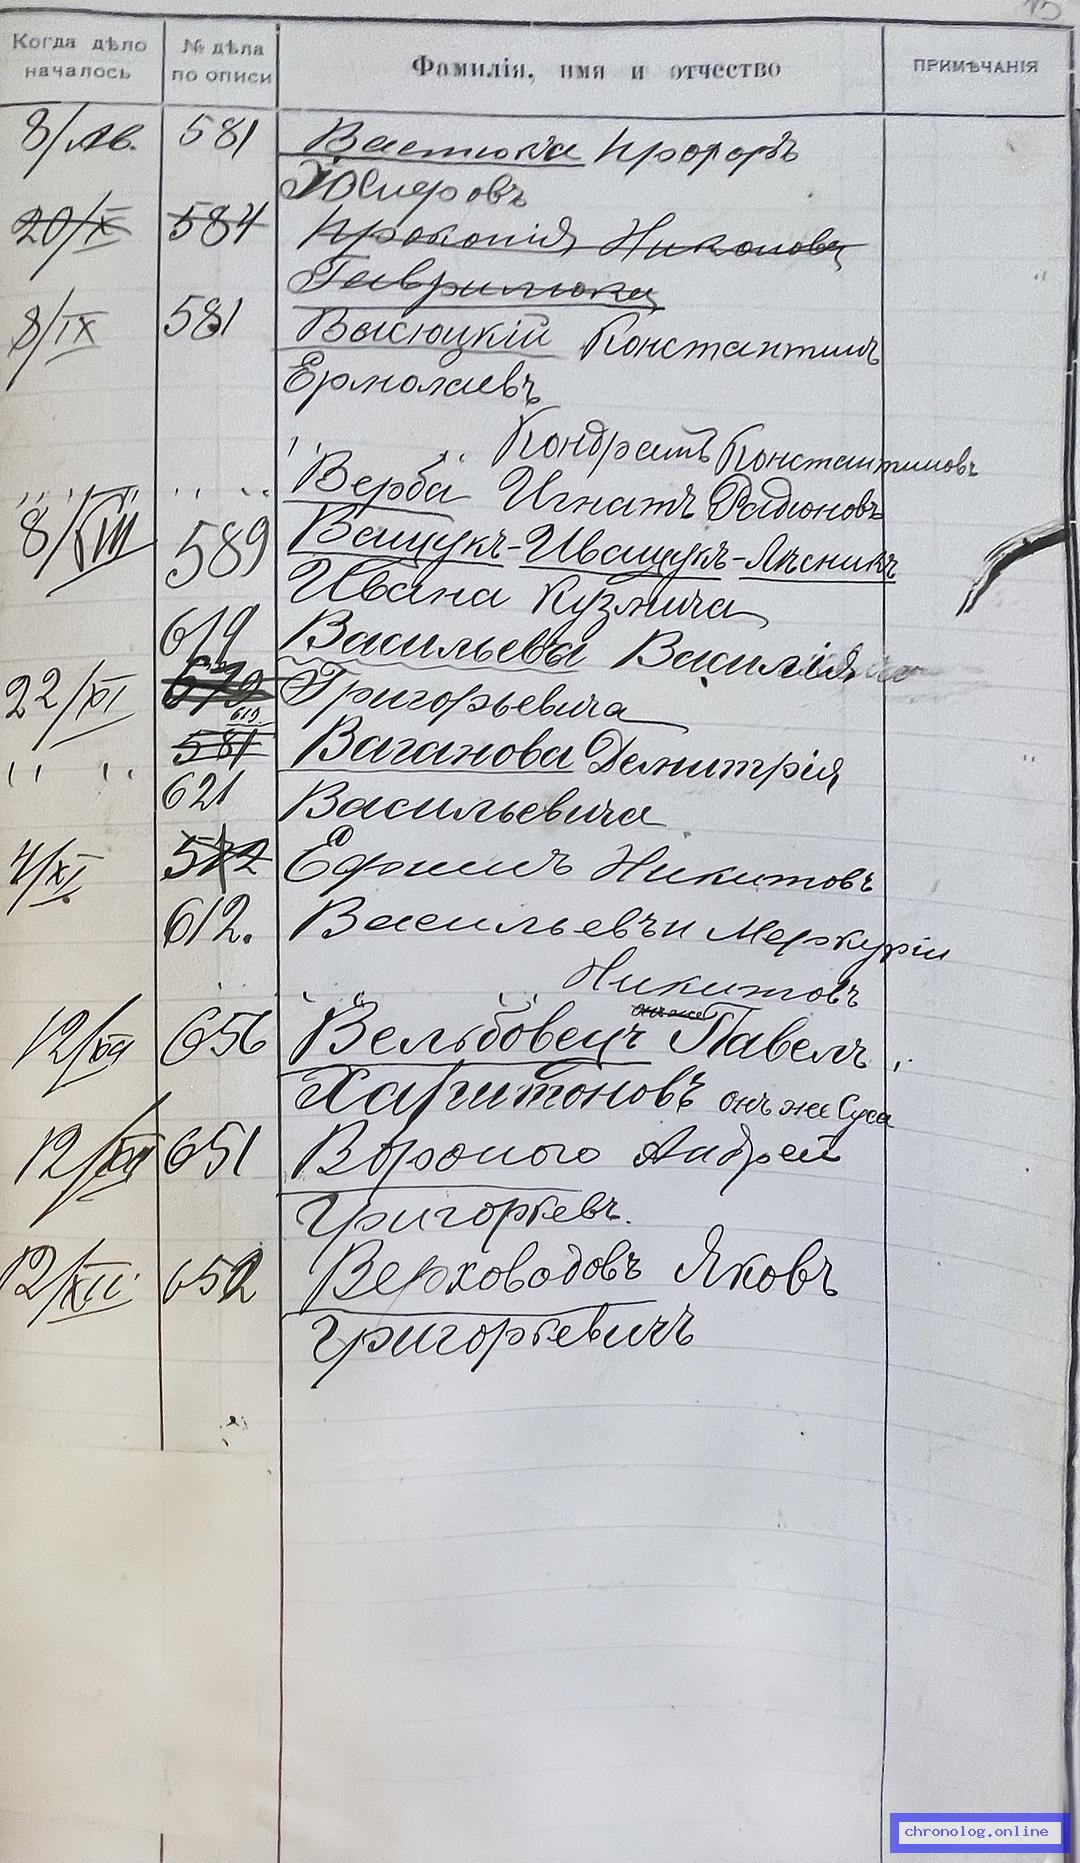 Когда дѣло началось № дѣла по описи Фамилія, имя и отчество ПРИМѢЧАНІЯ
8/Ав. 581 Профоръ
20/X 584 Прокопія Никонова
Гаврилюка
8/IX 581 Высоцкій Константинъ
Ермолаевъ
" " Кондратъ Константиновъ
" " " " " " Верба Игнатъ Радіоновъ
8/VIII 589 Ващукъ-Иващукъ-Лѣсникъ
Ивана Кузмича
619 Васильева Василія
22/XI Григорьевича
619
581 Ваганова Демитрія
" " 621 Васильевича
4/XI 572 Ефимъ Никитовъ
612. Васильевъ и Меркурій
Никитовъ
онъ же
12/XII 656 Вельбовецъ Павелъ
Харитоновъ онъ же Суса
12/XII 651 Вороного Андрей
Григорьевъ.
12/XII 652 Верховодовъ Яковъ
Григорьевичъ
chronolog.online